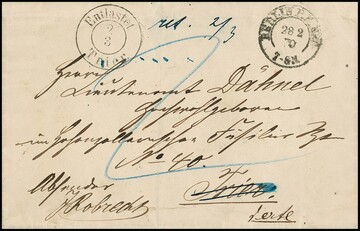 Entlastet
2/3
Trier
ret. 2/3
BERLIN
28 2
70
7-8 N.
Herrn
Lieutenant Dähnel
Hochwohlgeboren
im Hohenzollernschen Füsilier Rgt
No 40.
Absender
Robrecht
Trier